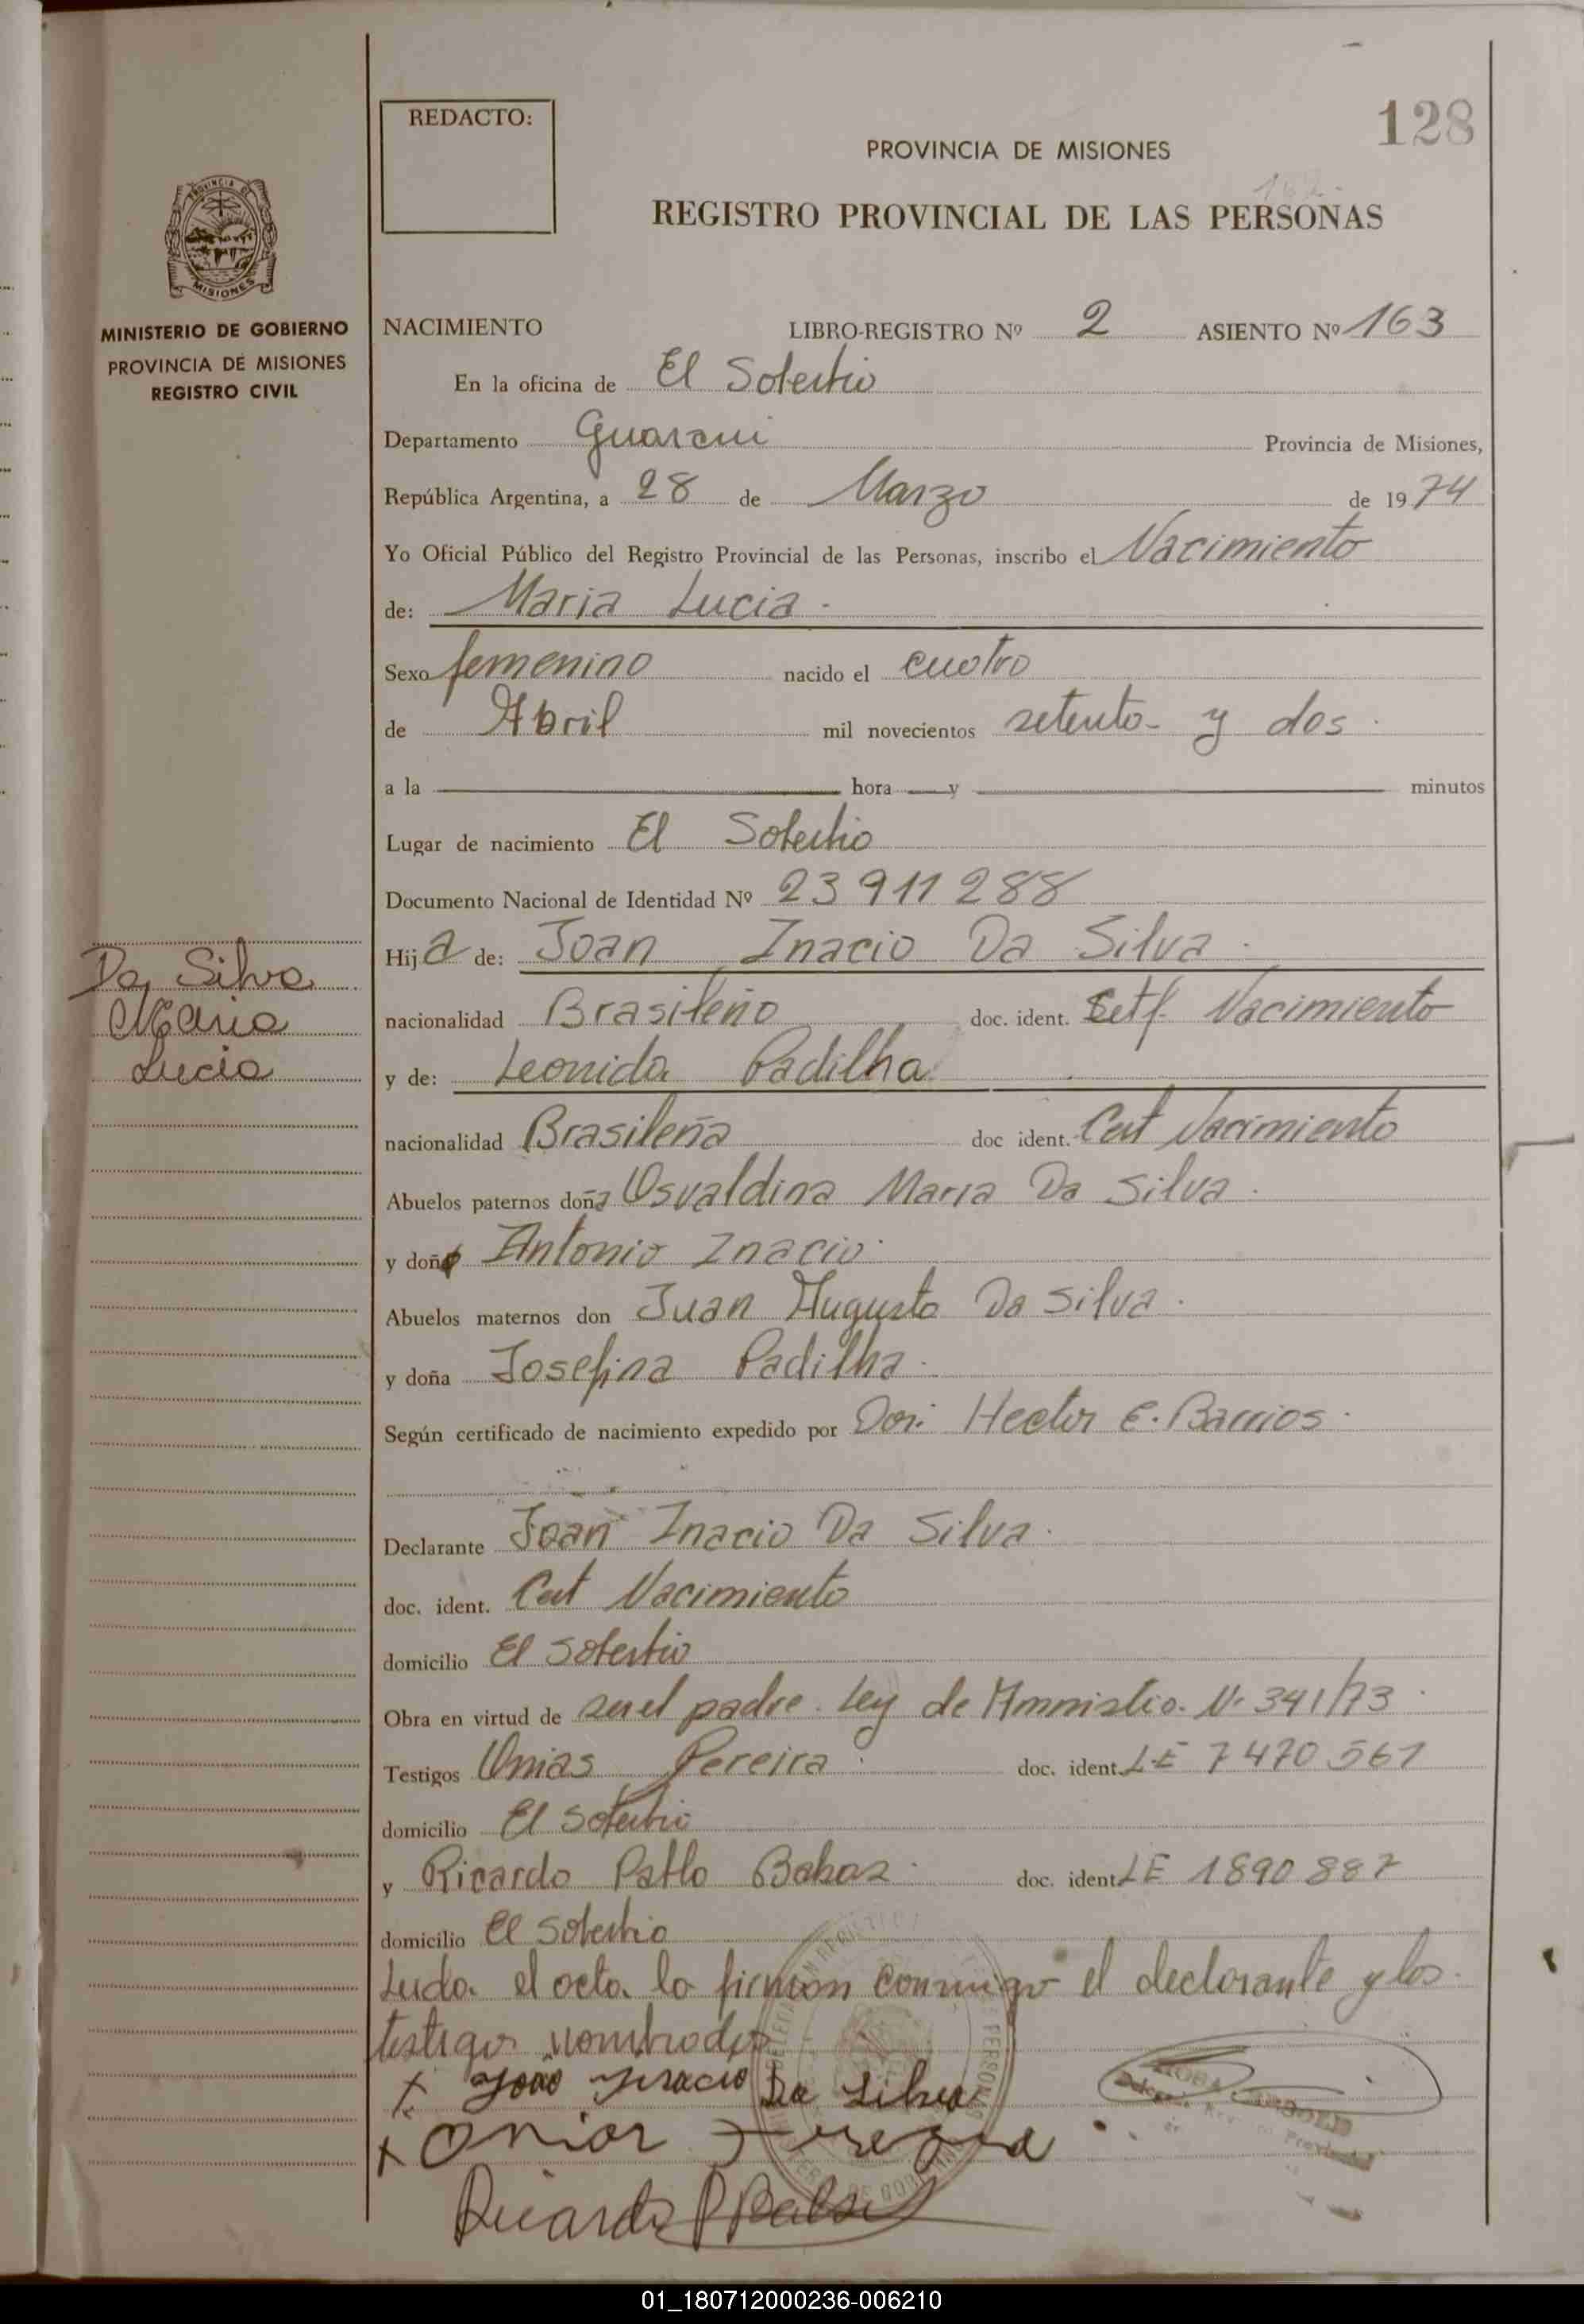 REDACTO:
128
PROVINCIA DE MISIONES
REGISTRO PROVINCIAL DE LAS PERSONAS
PROVINCIA DE
MISIONES
MINISTERIO DE GOBIERNO
PROVINCIA DE MISIONES
REGISTRO CIVIL
NACIMIENTO LIBRO-REGISTRO Nº 2 ASIENTO Nº 163
En la oficina de El Soberbio
Departamento Guarani Provincia de Misiones,
República Argentina, a 28 de Marzo de 1974
Yo Oficial Público del Registro Provincial de las Personas, inscribo el Nacimiento
de: Maria Lucia
Sexo femenino nacido el cuatro
de Abril mil novecientos setenta y dos
a la hora y minutos
Lugar de nacimiento El Soberbio
Documento Nacional de Identidad Nº 23 911 288
Hija de: Joan Inacio Da Silva
Da Silva
Maria
Lucia
nacionalidad Brasileño doc. ident. Cetf. Nacimiento
y de: Leonida Padilha
nacionalidad Brasileña doc ident. Cert Nacimiento
Abuelos paternos doña Osvaldina Maria Da Silva
y doño Antonio Inacio
Abuelos maternos don Juan Augusto Da Silva
y doña Josefina Padilha
Según certificado de nacimiento expedido por Dor. Hector E. Barrios
Declarante Joan Inacio Da Silva
doc. ident. Cert Nacimiento
domicilio El Soberbio
Obra en virtud de ser el padre. Ley de Amnistia. Nº 341/73
Testigos Onias Pereira doc. ident. LE 7470 561
domicilio El Soberbio
y Ricardo Pablo doc. ident. LE 1890 887
domicilio El Soberbio
Leida el acta la firman conmigo el declarante y los
testigos nombrados
x João Inacio Da Silva
x Onias Pereira
Ricardo P
01_180712000236-006210